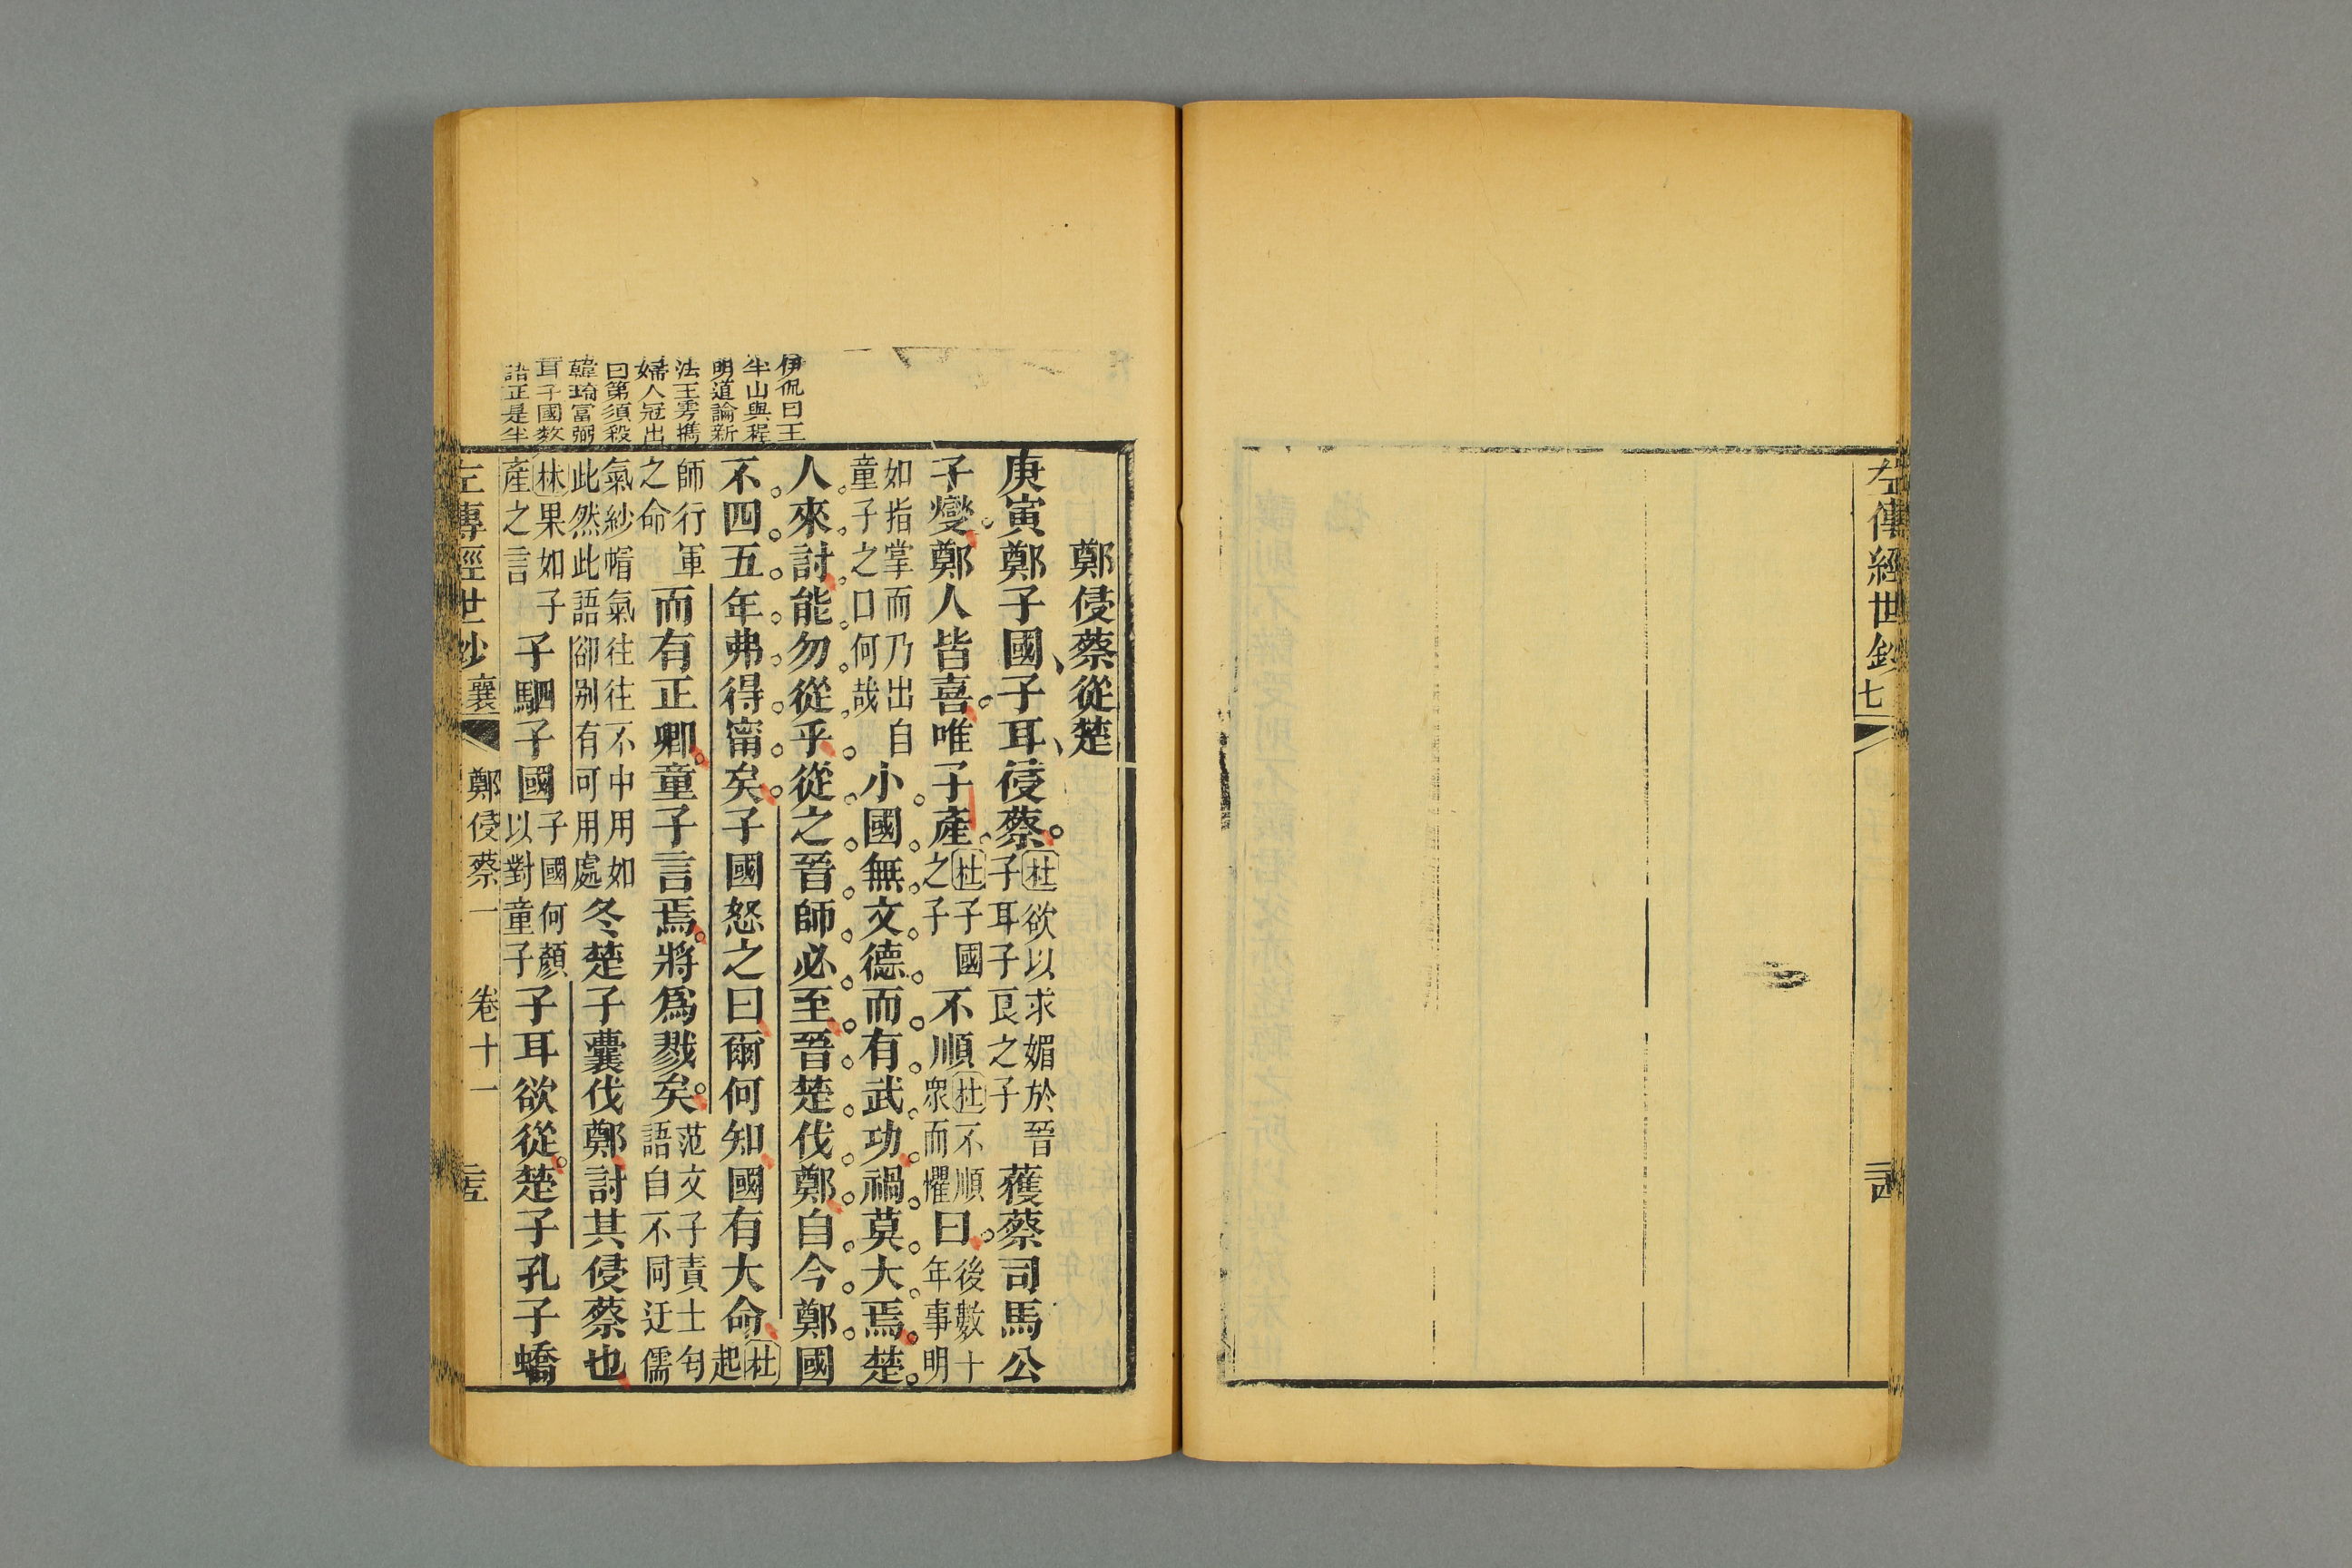 左傳經世鈔 七
鄭侵蔡從楚
庚寅鄭子國子耳侵蔡杜欲以求媚於晉子耳子良之子獲蔡司馬公
子燮鄭人皆喜唯子產杜子國之子不順杜不順衆而懼曰後數十年事明
如指掌而乃出自童子之口何哉小國無文德而有武功禍莫大焉楚
人來討能勿從乎從之晉師必至晉楚伐鄭自今鄭國
不四五年弗得甯矣子國怒之曰爾何知國有大命杜起
師行軍之命而有正卿童子言焉將爲戮矣范文子責士匄語自不同迂儒
氣紗帽氣往往不中用如此然此語卻别有可用處冬楚子囊伐鄭討其侵蔡也
林果如子產之言子駟子國子國何顏以對童子子耳欲從楚子孔子蟜
伊侃曰王
半山與程
明道論新
法王雱擕
婦人冠出
曰第須殺
韓琦富弼
耳子國數
語正是半
左傳經世鈔 襄 鄭侵蔡一 卷十一